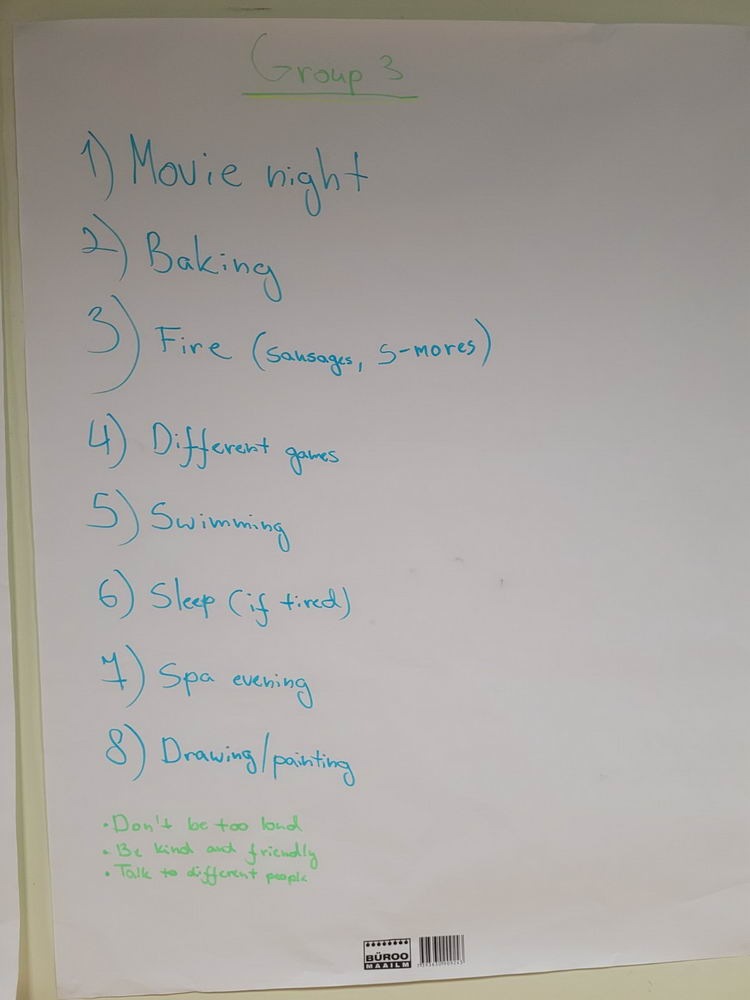 Group 3
1) Movie night
2) Baking
3) Fire (sausages, s-mores)
4) Different games
5) Swimming
6) Sleep (if tired)
7) Spa evening
8) Drawing/painting
• Don't be too loud
• Be kind and friendly
• Talk to different people
BÜROO
MAAILM